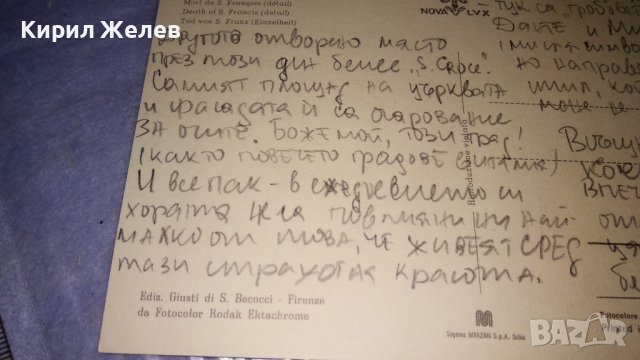 Кирил Желев
Mort de S. François (détail)
Death of S. Francis (detail)
Tod von S. Franz (Einzelheit)
NOVA LVX
Другото отворено място
през този ден беше „S. Croce".
Самият площад на църквата
и фасадата ѝ са очарование
за очите. Боже мой, този град!
(както повечето градове в Италия)
И все пак - в ежедневието си
хората не са повлияни ни най-
малко от това, че живеят сред
тази страхотна красота.
туи са „гробове
Данте и Ми
но направо
може не
Riproduzione vietata
Ediz. Giusti di S. Becocci - Firenze
da Fotocolor Kodak Ektachrome
Sogema MARZARI S.p.A. Schio
Fotocelere
Printed
BAZAR.BG